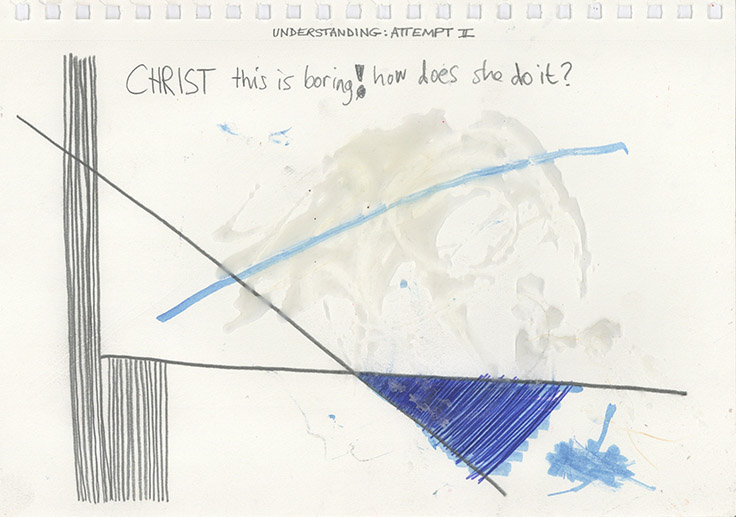 UNDERSTANDING: ATTEMPT II
CHRIST this is boring! how does she do it?